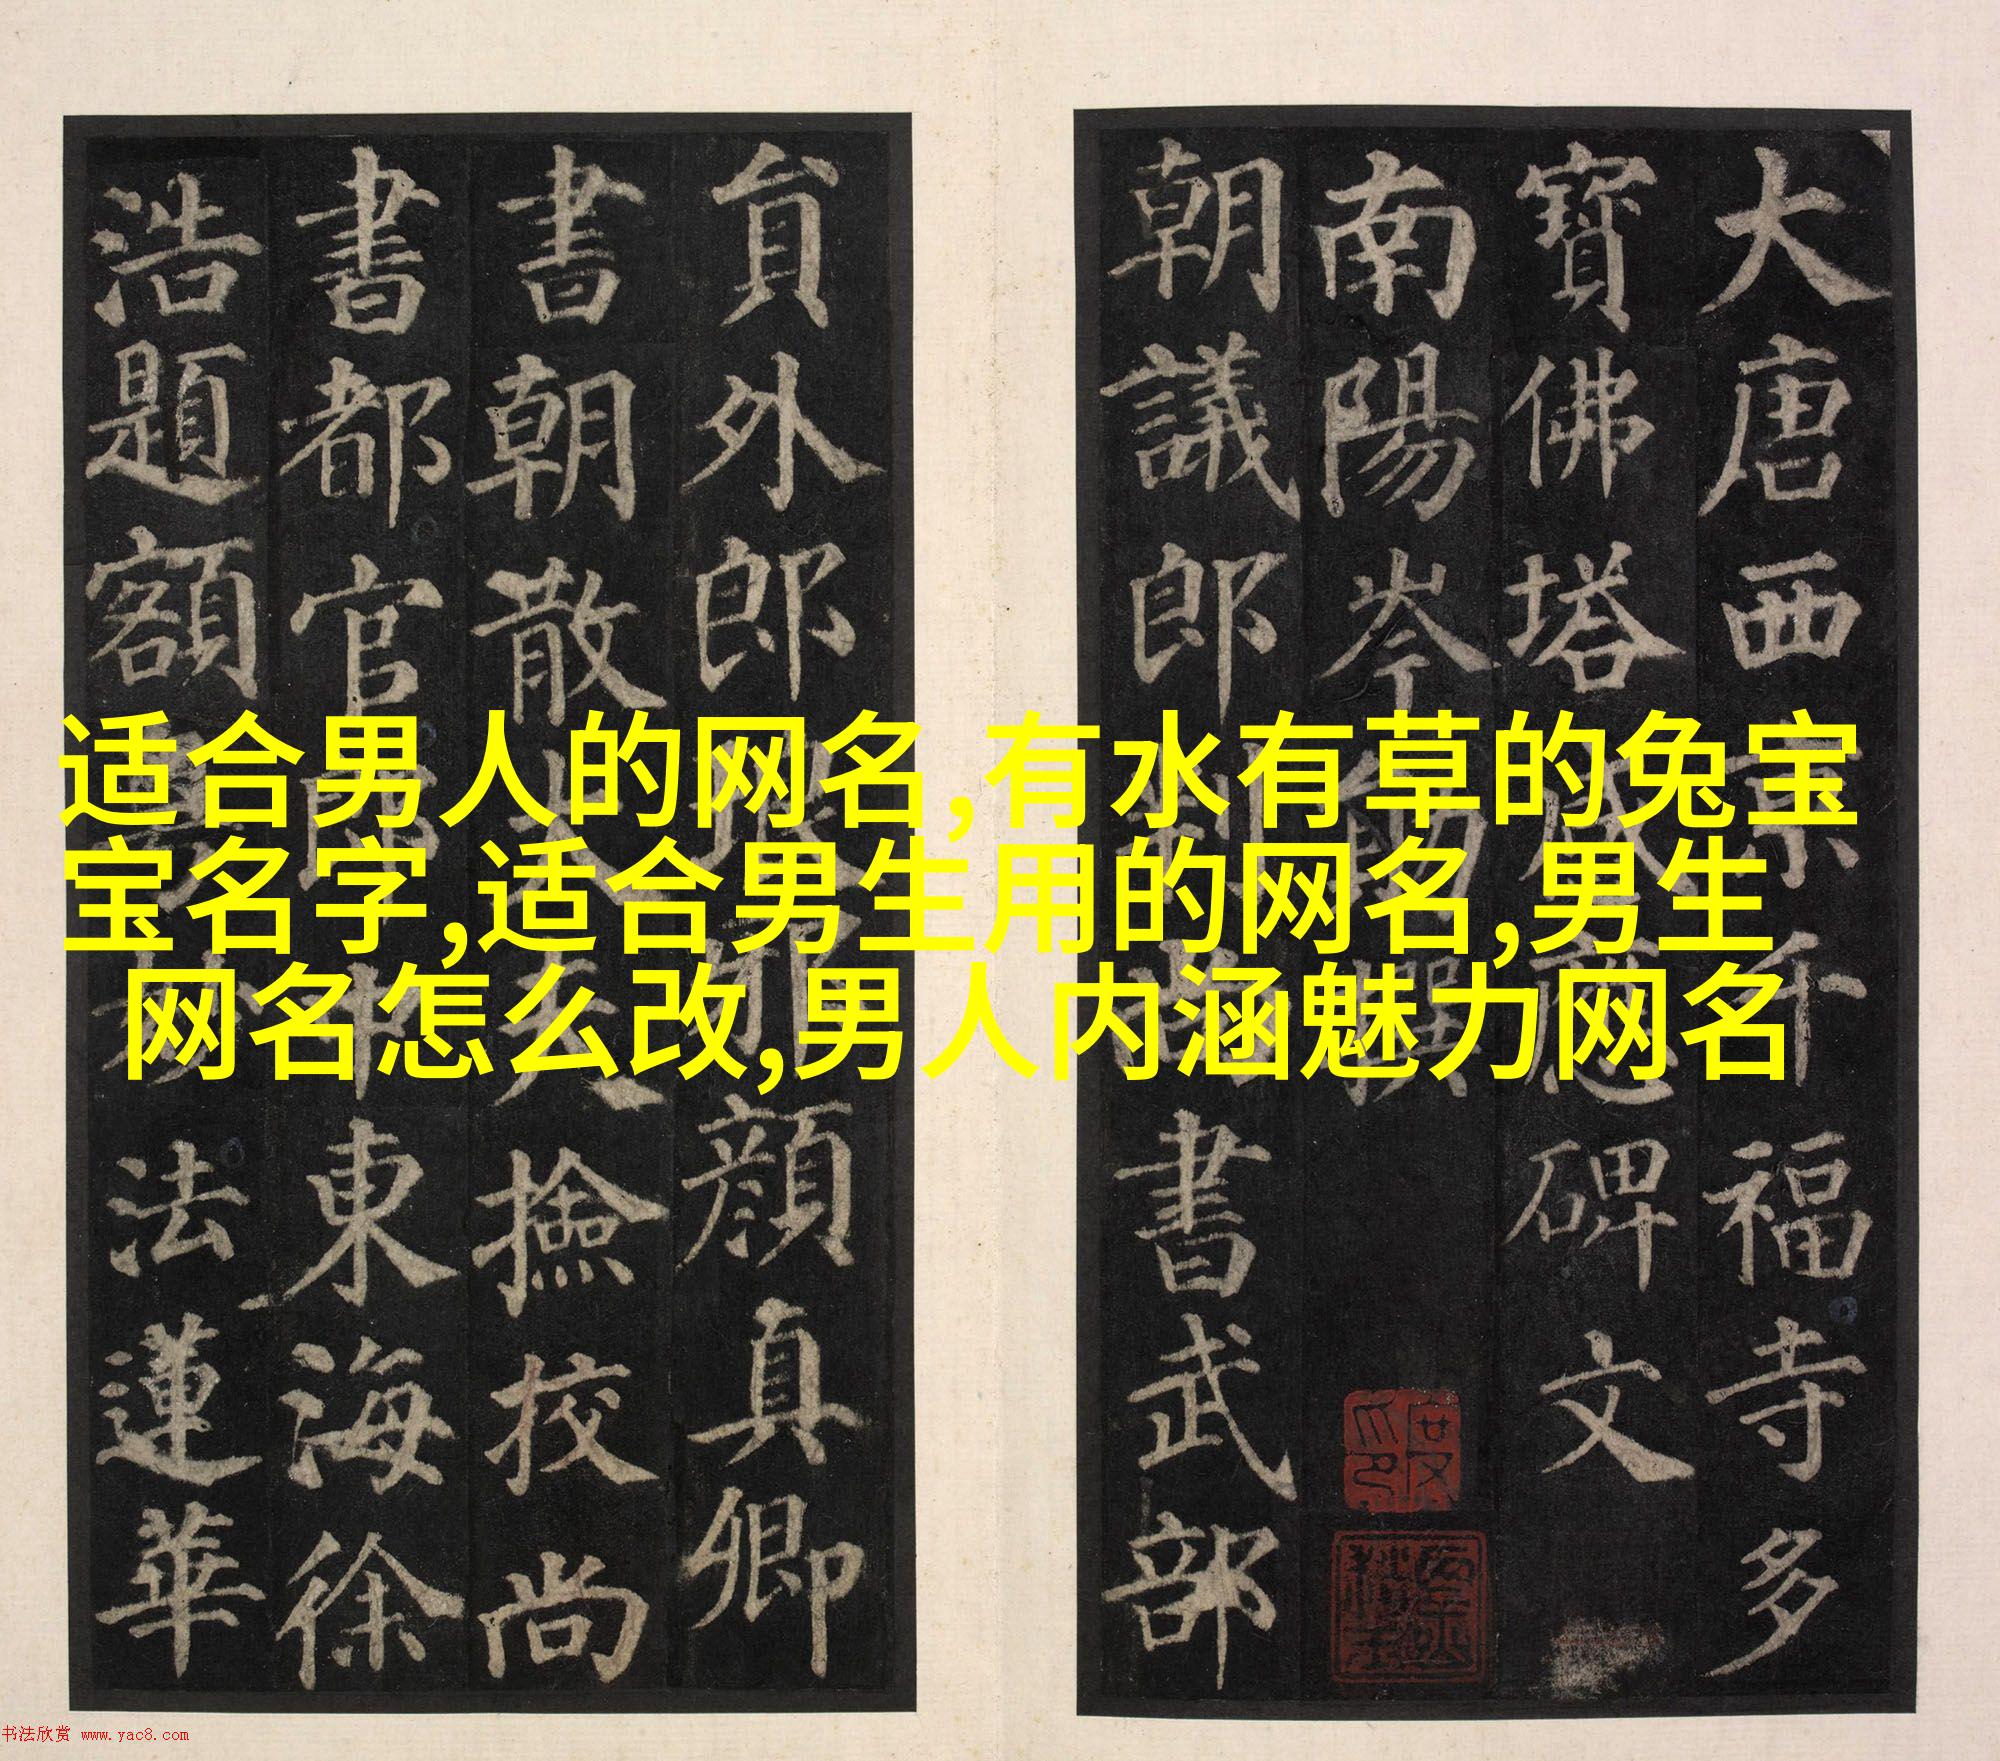 大唐西京千福寺多
寶佛塔感應碑文
南陽岑勛撰
朝議郎判尚書武部
員外郎琅邪顏真卿
書朝散大夫撿校尚
書都官郎中東海徐
浩題額粵妙法蓮華
适合男人的网名,有水有草的兔宝
宝名字,适合男生用的网名,男生
网名怎么改,男人内涵魅力网名
书法欣赏 www.yac8.com